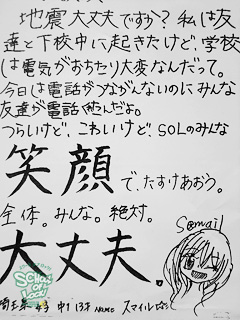 地震大丈夫ですか？私は友
達と下校中に起きたけど、学校
は電気がおちたり大変なんだって。
今日は電話がつながんないのにみんな
友達が電話くれたんだよ。
つらいけど、こわいけど、SOLのみんな
笑顔で、たすけあおう。
全体。みんな。絶対。
大丈夫.
S@mail
SCHOOL OF LOCK!
埼玉県 女子 中1 13才 NAME スマイル☆